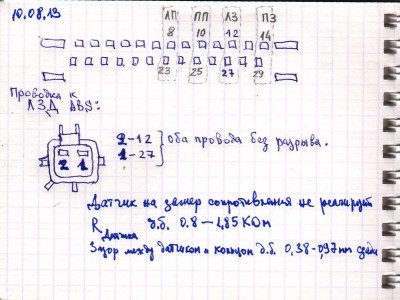 10.08.13
ЛП ПП ЛЗ ПЗ
8 10 12 14
23 25 27 29
Проводка к
ЛЗД ABS:
2-12
1-27
оба провода без разрыва.
2 1
Датчик на замер сопротивления не реагирует
R Датчика д.б. 0.8 – 1,85 КОм
Зазор между датчиком и кольцом д.б. 0,38-0,97мм сзади